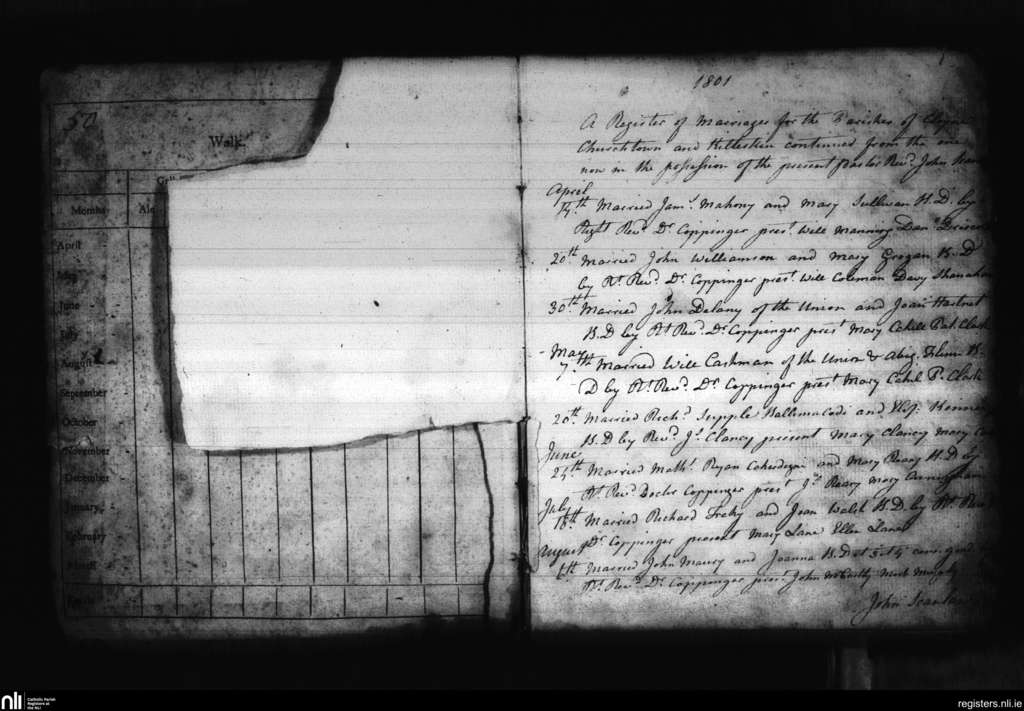 50
Walk
Months
April
May
June
July
August
September
October
November
December
January
February
March
1801
A Register of Marriages for the Parishes of Cloyne
Churchtown and Killeskin continued from the one
now in the possession of the present Pastor Revd. John
April
14th Married Jams. Mahony and Mary Sullivan B.D. by
Right Revd. Dr. Coppinger prest. Will Manning Danl.
20th Married John Williamson and Mary Grogan B.D
by Rt. Revd. Dr. Coppinger prest. Will Coleman Davy Shanahan
30th Married John Delany of the Union and Joan Hartnet
B.D by Rt Revd. Dr Coppinger prest Mary Cahill Pat. Clark
May
7th Married Will Cashman of the Union & Abig.
D by Rt. Revd. Dr. Coppinger prest Mary Cahel P. Clark
20th Married Richd. Supple Ballemacode and
B.D by Revd. Js. Clancy present Mary Clancy Mary
June
24th Married Matht. Ryan and Mary Reary B.D by
Rt. Revd Doctr Coppinger prest Js. Reary Mary
July
18th Married Richard and Joan Walsh B.D. by Rt. Revd
Dr. Coppinger present Mary Lane Ellen Lane
August
6th Married John and Joanna B.D at 3 & 4
Rt. Revd. Dr. Coppinger prest John McCarthy Murphy
John Scanlan
nli
Catholic Parish
Registers at
the NLI
registers.nli.ie